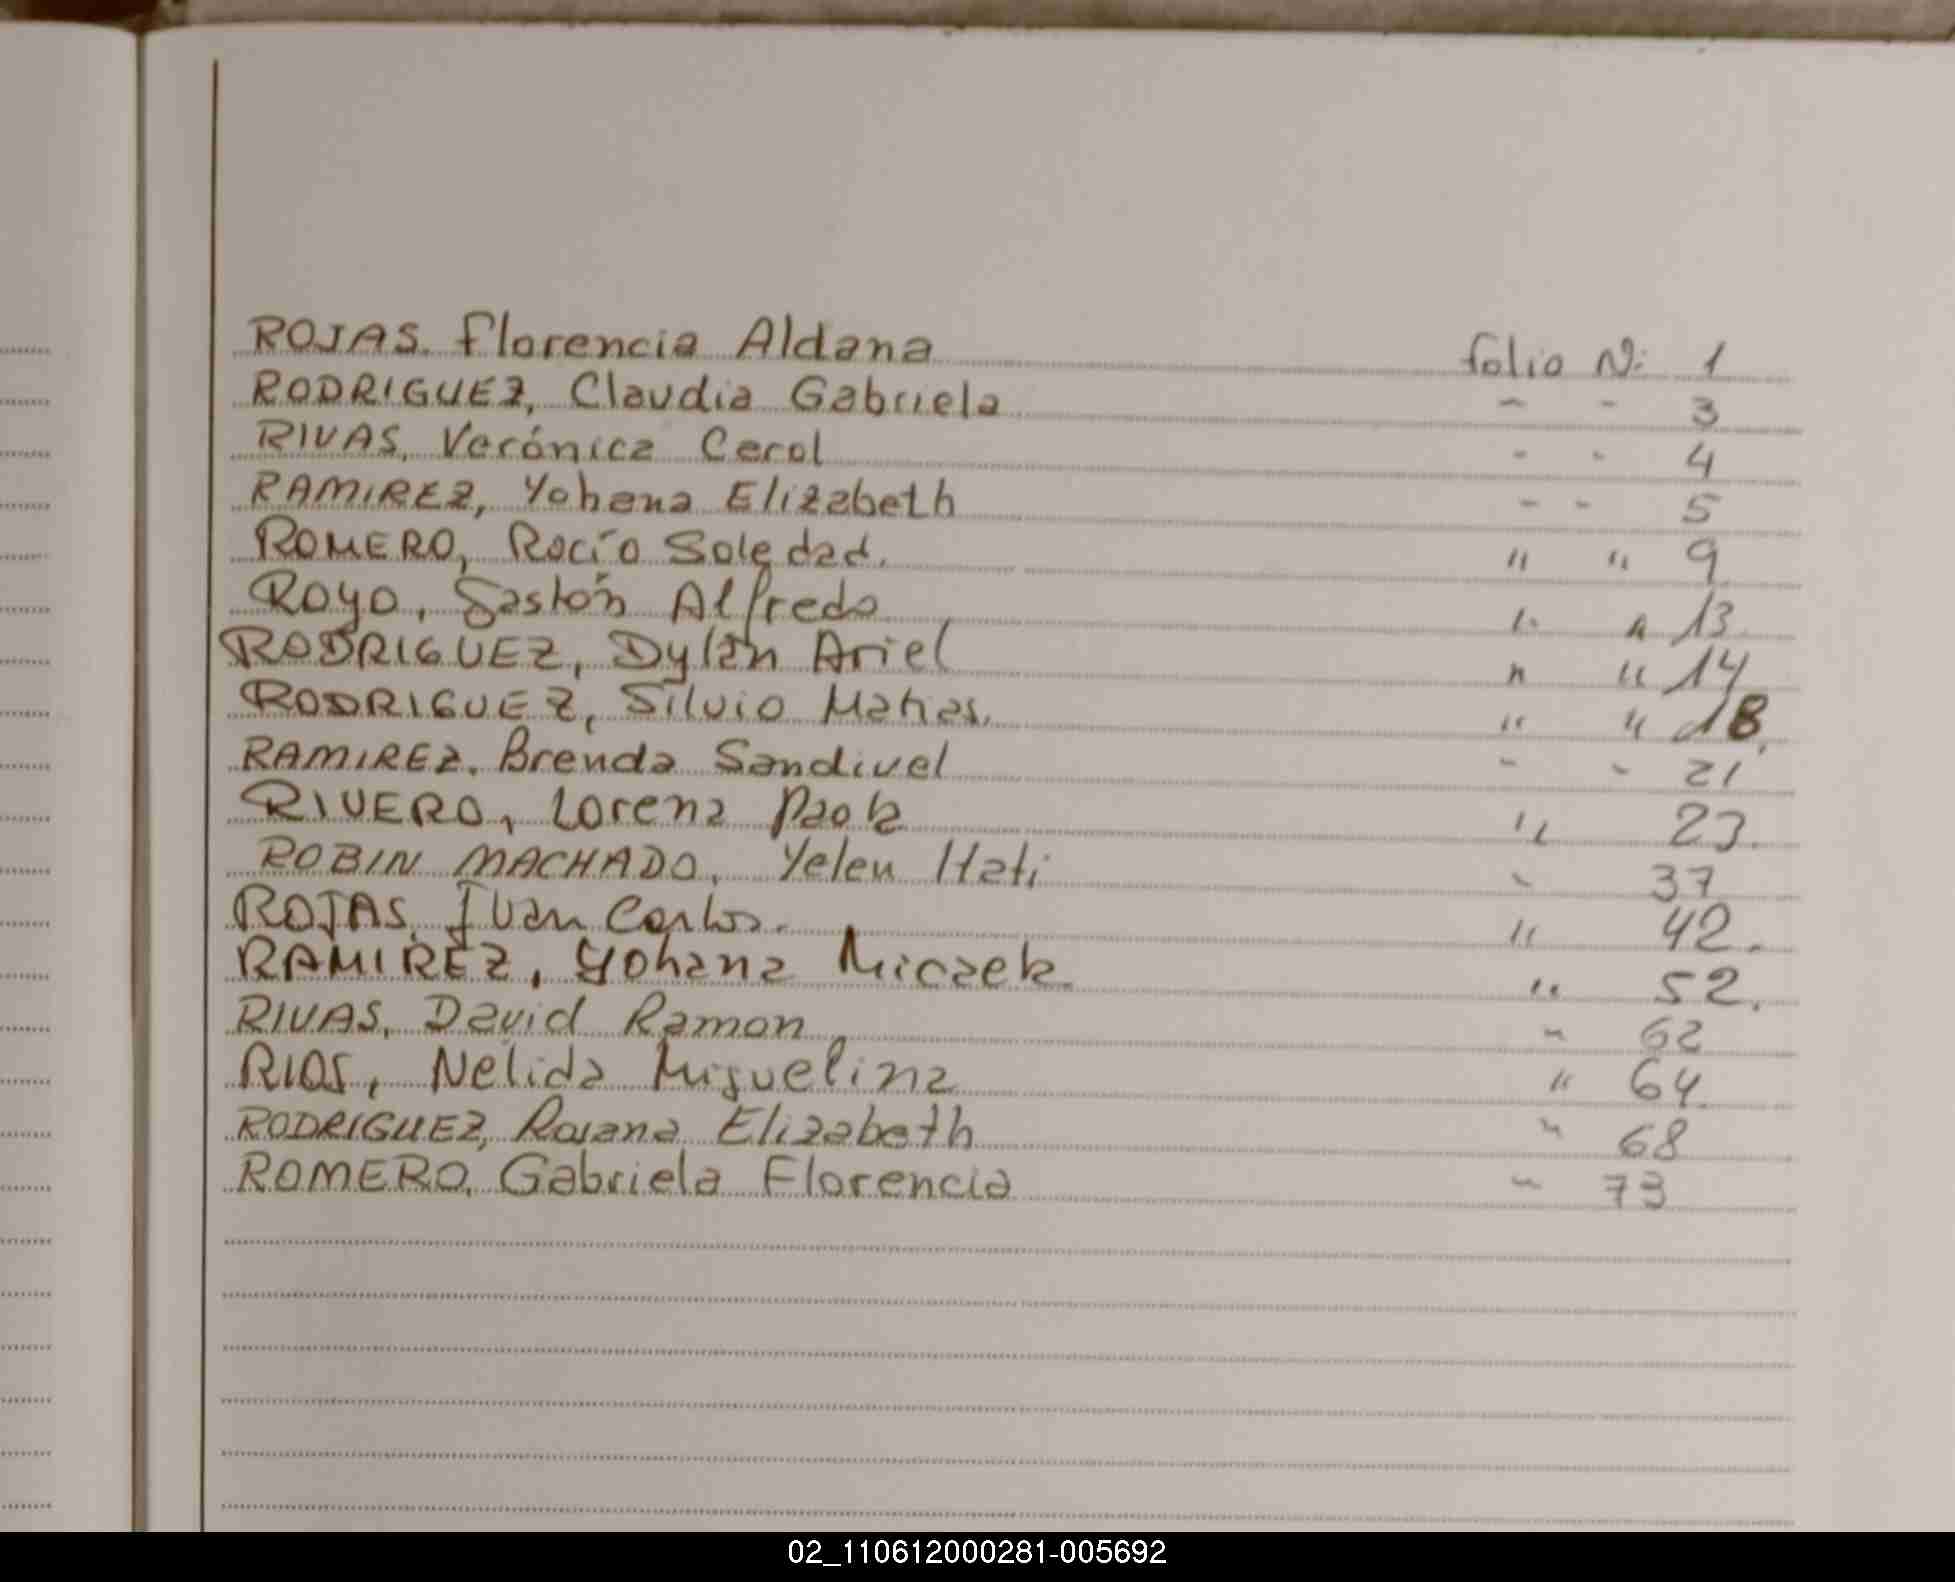 ROJAS, Florencia Aldana folio Nº 1
RODRIGUEZ, Claudia Gabriela " " 3
RIVAS, Verónica Cerol " " 4
RAMIREZ, Yohana Elizabeth " " 5
ROMERO, Rocío Soledad. " " 9
ROYO, Gastón Alfredo " " 13
RODRIGUEZ, Dylan Ariel " " 14
RODRIGUEZ, Silvio Matias. " " 18.
RAMIREZ, Brenda Sandivel " " 21
RIVERO, Lorena Paola " 23.
ROBIN MACHADO, Yelen Itati " 37
ROJAS, Ivan Carlos. " 42.
RAMIREZ, Yohana Micaela " 52.
RIVAS, David Ramon " 62
RIOS, Nélida Miguelina " 64
RODRIGUEZ, Roxana Elizabeth " 68
ROMERO, Gabriela Florencia " 73
02_110612000281-005692